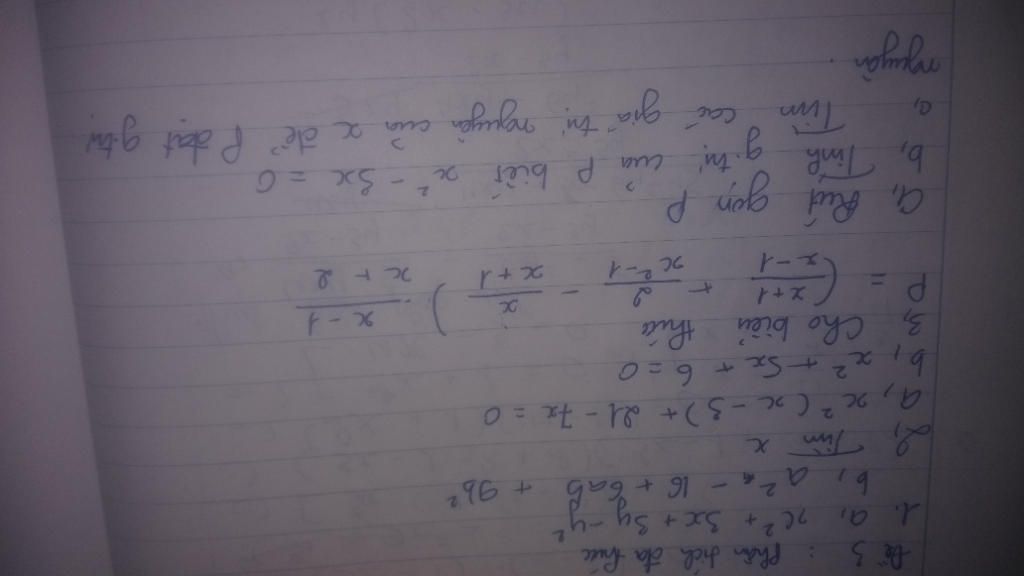 Đề 3 : Phân tích đa thức
1. a, x² + 3x + 3y - y²
b, a² - 16 + 6ab + 9b²
2, Tìm x
a, x² (x - 3) + 21 - 7x = 0
b, x² + 5x + 6 = 0
3, Cho biểu thức
P = ( \frac{x+1}{x-1} + \frac{2}{x²-1} - \frac{x}{x+1} ) . \frac{x-1}{x+2}
a, Rút gọn P
b, Tính g.trị của P biết x² - 3x = 0
c, Tìm các giá trị nguyên của x để P đạt g.trị
nguyên.